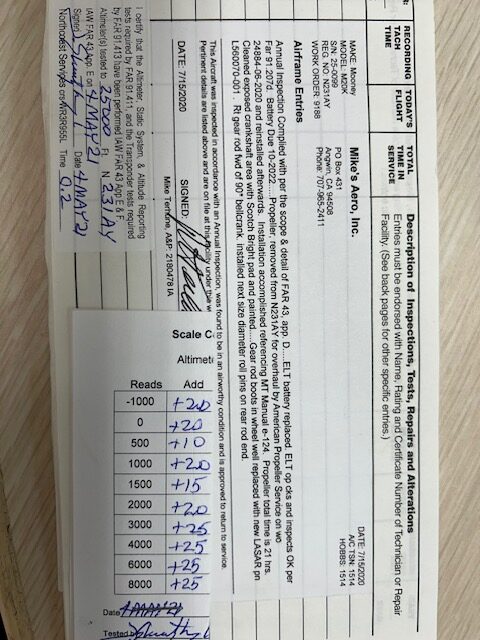 RECORDING TACH TIME
TODAY'S FLIGHT
TOTAL TIME IN SERVICE
Description of Inspections, Tests, Repairs and Alterations
Entries must be endorsed with Name, Rating and Certificate Number of Technician or Repair
Facility. (See back pages for other specific entries.)
MAKE: Mooney
MODEL: M20K
S/N: 25-0099
REG. NO.: N231AY
WORK ORDER: 9188
Mike's Aero, Inc.
PO Box 431
Angwin, CA 94508
Phone: 707-965-2411
DATE: 7/15/2020
A/C TSN: 1514
HOBBS: 1514
Airframe Entries
Annual Inspection Complied with per the scope & detail of FAR 43, app. D.....ELT battery replaced. ELT op cks and inspects OK per
Far 91.207d. Battery Due 10-2022.....Propeller, removed from N231AY for overhaul by American Propeller Service on wo
24884-06-2020 and reinstalled afterwards. Installation accomplished referencing MT Manual e-124. Propeller total time is 21 hrs.
Cleaned exposed crankshaft area with Scotch Bright pad and painted.....Gear rod boots in wheel well replaced with new LASAR pn
L560070-001. Rt gear rod fwd of 90° bellcrank. installed next size diameter roll pins on rear rod end
This Aircraft was inspected in accordance with an Annual Inspection, was found to be in an airworthy condition and is approved to return to service.
Pertinent details are listed above and are on file at this facility under the w
DATE: 7/15/2020
SIGNED:
Mike Ternone, A&P: 2180478 IA
I certify that the Altimeter, Static System, & Altitude Reporting
tests required by FAR 91.411, and the Transponder tests required
by FAR 91.413 have been performed IAW FAR 43 App E & F.
Altimeter(s) tested to 25000 Ft. N 231AY
IAW FAR 43 App. E on 4 MAY 21
Signed Date 4 MAY 21
Northcoast Services Time 0.2
Scale C
Altimet
Reads Add
-1000 +20
0 +20
500 +10
1000 +20
1500 +15
2000 +20
3000 +25
4000 +25
6000 +25
8000 +25
Date 4 MAY 21
Tested b